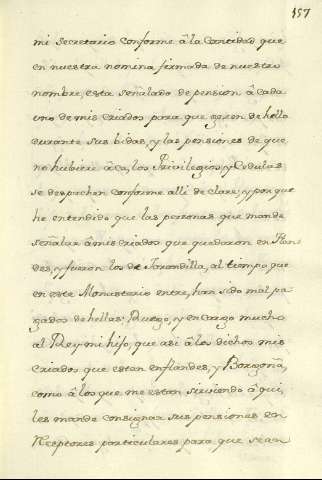 157
mi secretario conforme â la Cantidad que
en nuestra nomina firmada de nuestro
nombre, esta señalado de pension â cada
uno de mis criados para que gozen de hella
durante sus bidas, y las pensiones de que
no hubiere âca, los Privilegios, y Cedulas
se despachen conforme alli declare; y porque
he entendido que las personas que mande
señalar â mis criados que quedaron en Flan
des, y fueron los de Jarandilla, al tiempo que
en este Monasterio entre, han sido mal pa
gados de hellas: Ruego, y encargo mucho
al Rey mi hijo, que asi â los dichos mis
criados que estan en flandes, y Borgoña,
como â los que me estan sirviendo â qui,
les mande consignar sus pensiones en
Reeptores particulares para que sean